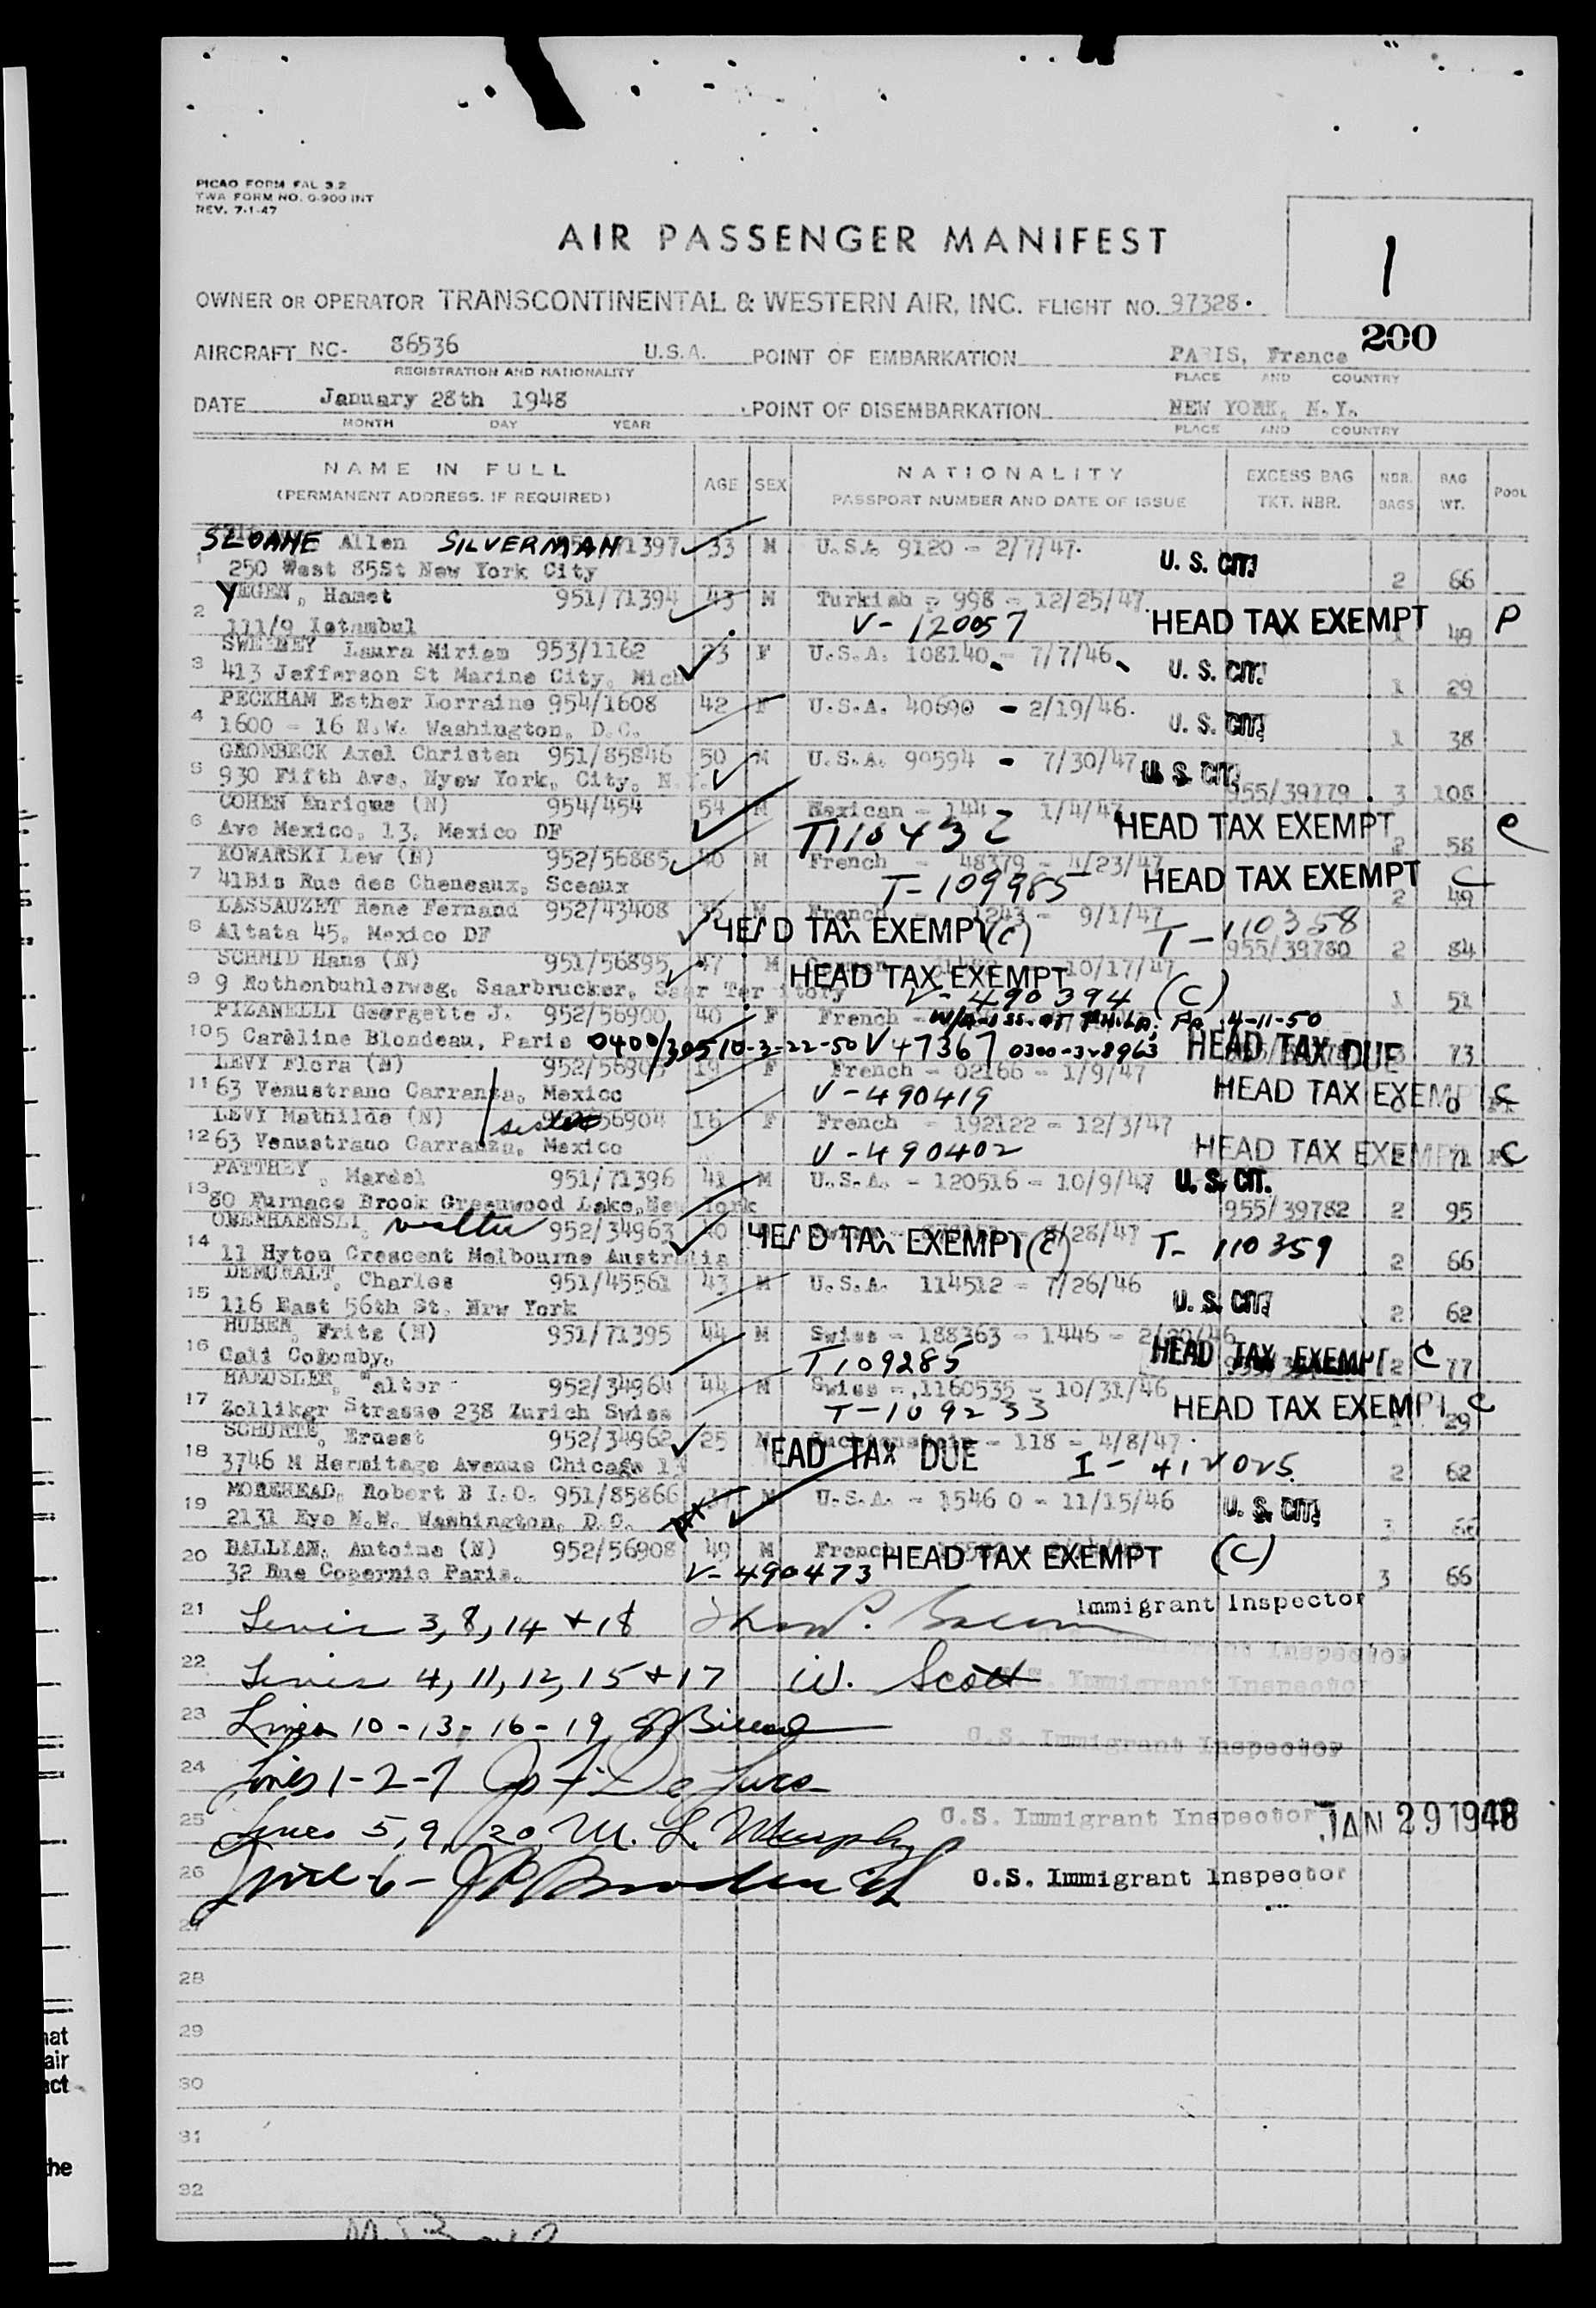 PICAO FORM FAL 3.2
TWA FORM NO. O-900 INT
REV. 7-1-47
AIR PASSENGER MANIFEST
1
OWNER OR OPERATOR TRANSCONTINENTAL & WESTERN AIR, INC. FLIGHT NO. 97328.
200
AIRCRAFT NC- 86536 U.S.A. POINT OF EMBARKATION PARIS, France
REGISTRATION AND NATIONALITY PLACE AND COUNTRY
DATE January 28th 1948 POINT OF DISEMBARKATION NEW YORK, N.Y.
MONTH DAY YEAR PLACE AND COUNTRY
NAME IN FULL AGE SEX NATIONALITY EXCESS BAG NBR. BAG POOL
(PERMANENT ADDRESS. IF REQUIRED) PASSPORT NUMBER AND DATE OF ISSUE TKT. NBR. BAGS WT.
SLOANE Allen SILVERMAN 71397 33 M U.S.A 9120 - 2/7/47. U. S. CIT.
1 250 West 85St New York City 2 66
YEGEN, Hamet 951/71394 43 M Turkish - 998 - 12/25/47.
2 111/9 Istambul V-120057 HEAD TAX EXEMPT 1 49 P
SWEENEY Laura Miriam 953/1162 23 F U.S.A. 108140 - 7/7/46
3 413 Jefferson St Marine City, Mich U. S. CIT. 1 29
PECKHAM Esther Lorraine 954/1608 42 F U.S.A. 40690 - 2/19/46.
4 1600 - 16 N.W. Washington, D.C. U. S. CIT. 1 38
GROMBECK Axel Christen 951/85846 50 M U.S.A. 90594 - 7/30/47 U. S. CIT.
5 930 Fifth Ave, Nyew York, City, N.Y. 955/39779 3 108
COHEN Enrique (N) 954/454 54 M Mexican - 144 1/4/47
6 Ave Mexico, 13, Mexico DF T110432 HEAD TAX EXEMPT 2 58 C
KOWARSKI Lew (N) 952/56885 40 M French - 48379 - 4/23/47
7 41Bis Rue des Cheneaux, Sceaux T-109985 HEAD TAX EXEMPT 2 49 C
LASSAUZET Rene Fernand 952/43408 35 M French 1243 - 9/1/47
8 Altata 45, Mexico DF HEAD TAX EXEMPT (C) T-110358 955/39780 2 84
SCHMID Hans (N) 951/56895 47 M 10/17/47
9 9 Rothenbuhlerweg, Saarbrucker, Saar Territory HEAD TAX EXEMPT V-490394 (C) 1 51
PIZANELLI Georgette J. 952/56900 40 F French 4-11-50
10 5 Carèline Blondeau, Paris 0400/30510-3-22-50 V+7367 0300-328963 HEAD TAX DUE 73
LEVY Flora (N) 19 F French - 02166 - 1/9/47
11 63 Venustrano Carranza, Mexico V-490419 HEAD TAX EXEMPT C
LEVY Mathilde (N) sister 56904 16 F French - 192122 - 12/3/47
12 63 Venustrano Carranza, Mexico V-490402 HEAD TAX EXEMPT 71 C
PATTHEY, Mardel 951/71396 41 M U.S.A. - 120516 - 10/9/47 U. S. CIT.
13 80 Furnace Brook Greenwood Lake, New York 955/39782 2 95
OBERHAENSLI, Walter 952/34963 40 28/47
14 11 Hyton Crescent Melbourne Australia HEAD TAX EXEMPT (C) T-110359 2 66
DEMURALT, Charles 951/45561 43 M U.S.A. 114512 - 7/26/46
15 116 East 56th St. Nrw York U. S. CIT. 2 62
HUBER, Fritz (N) 951/71395 44 M Swiss - 188363 - 1446 - 2/20/46
16 Cali Colomby. T109285 HEAD TAX EXEMPT C 2 77
HAEUSLER, Walter 952/34964 44 M Swiss - 1160535 - 10/31/46
17 Zollikgr Strasse 238 Zurich Swiss T-109233 HEAD TAX EXEMPT C 29
SCHURTE, Ernest 952/34962 25 M 118 - 4/8/47.
18 3746 M Hermitage Avenue Chicago 13 HEAD TAX DUE I-412025 2 62
MOREHEAD, Robert B I.O. 951/85866 37 M U.S.A. - 1546 0 - 11/15/46
19 2131 Eye N.W. Washington, D.C. U. S. CIT. 3 66
BALLIAN, Antoine (N) 952/56908 49 M French HEAD TAX EXEMPT (C)
20 32 Rue Copernic Paris. V-490473 3 66
Immigrant Inspector
21 Lines 3, 8, 14 + 18
Immigrant Inspector
22 Lines 4, 11, 12, 15 + 17 W. Scott U.S. Immigrant Inspector
23 Lines 10-13, 16-19
U.S. Immigrant Inspector
24 Lines 1-2-7
25 Lines 5, 9, 20 M. L. Murphy U.S. Immigrant Inspector JAN 29 1948
26 Line-6- U.S. Immigrant Inspector
27
28
29
30
31
32
hat
air
act
the